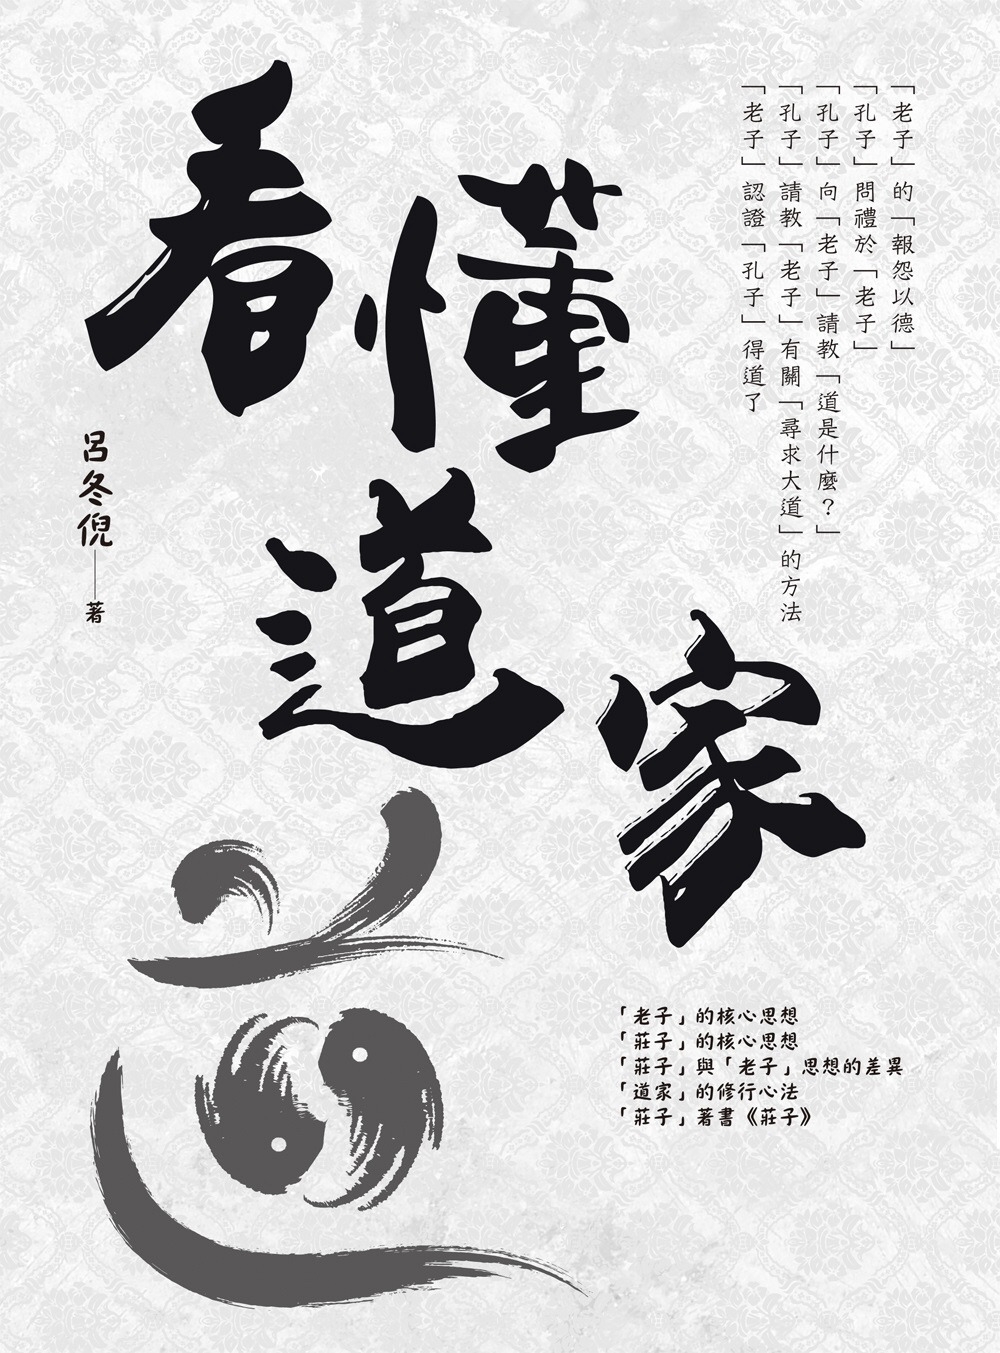 看懂道家
「老子」的「報怨以德」
「孔子」問禮於「老子」
「孔子」向「老子」請教「道是什麼？」
「孔子」請教「老子」有關「尋求大道」的方法
「老子」認證「孔子」得道了
呂冬倪——著
「老子」的核心思想
「莊子」的核心思想
「莊子」與「老子」思想的差異
「道家」的修行心法
「莊子」著書《莊子》